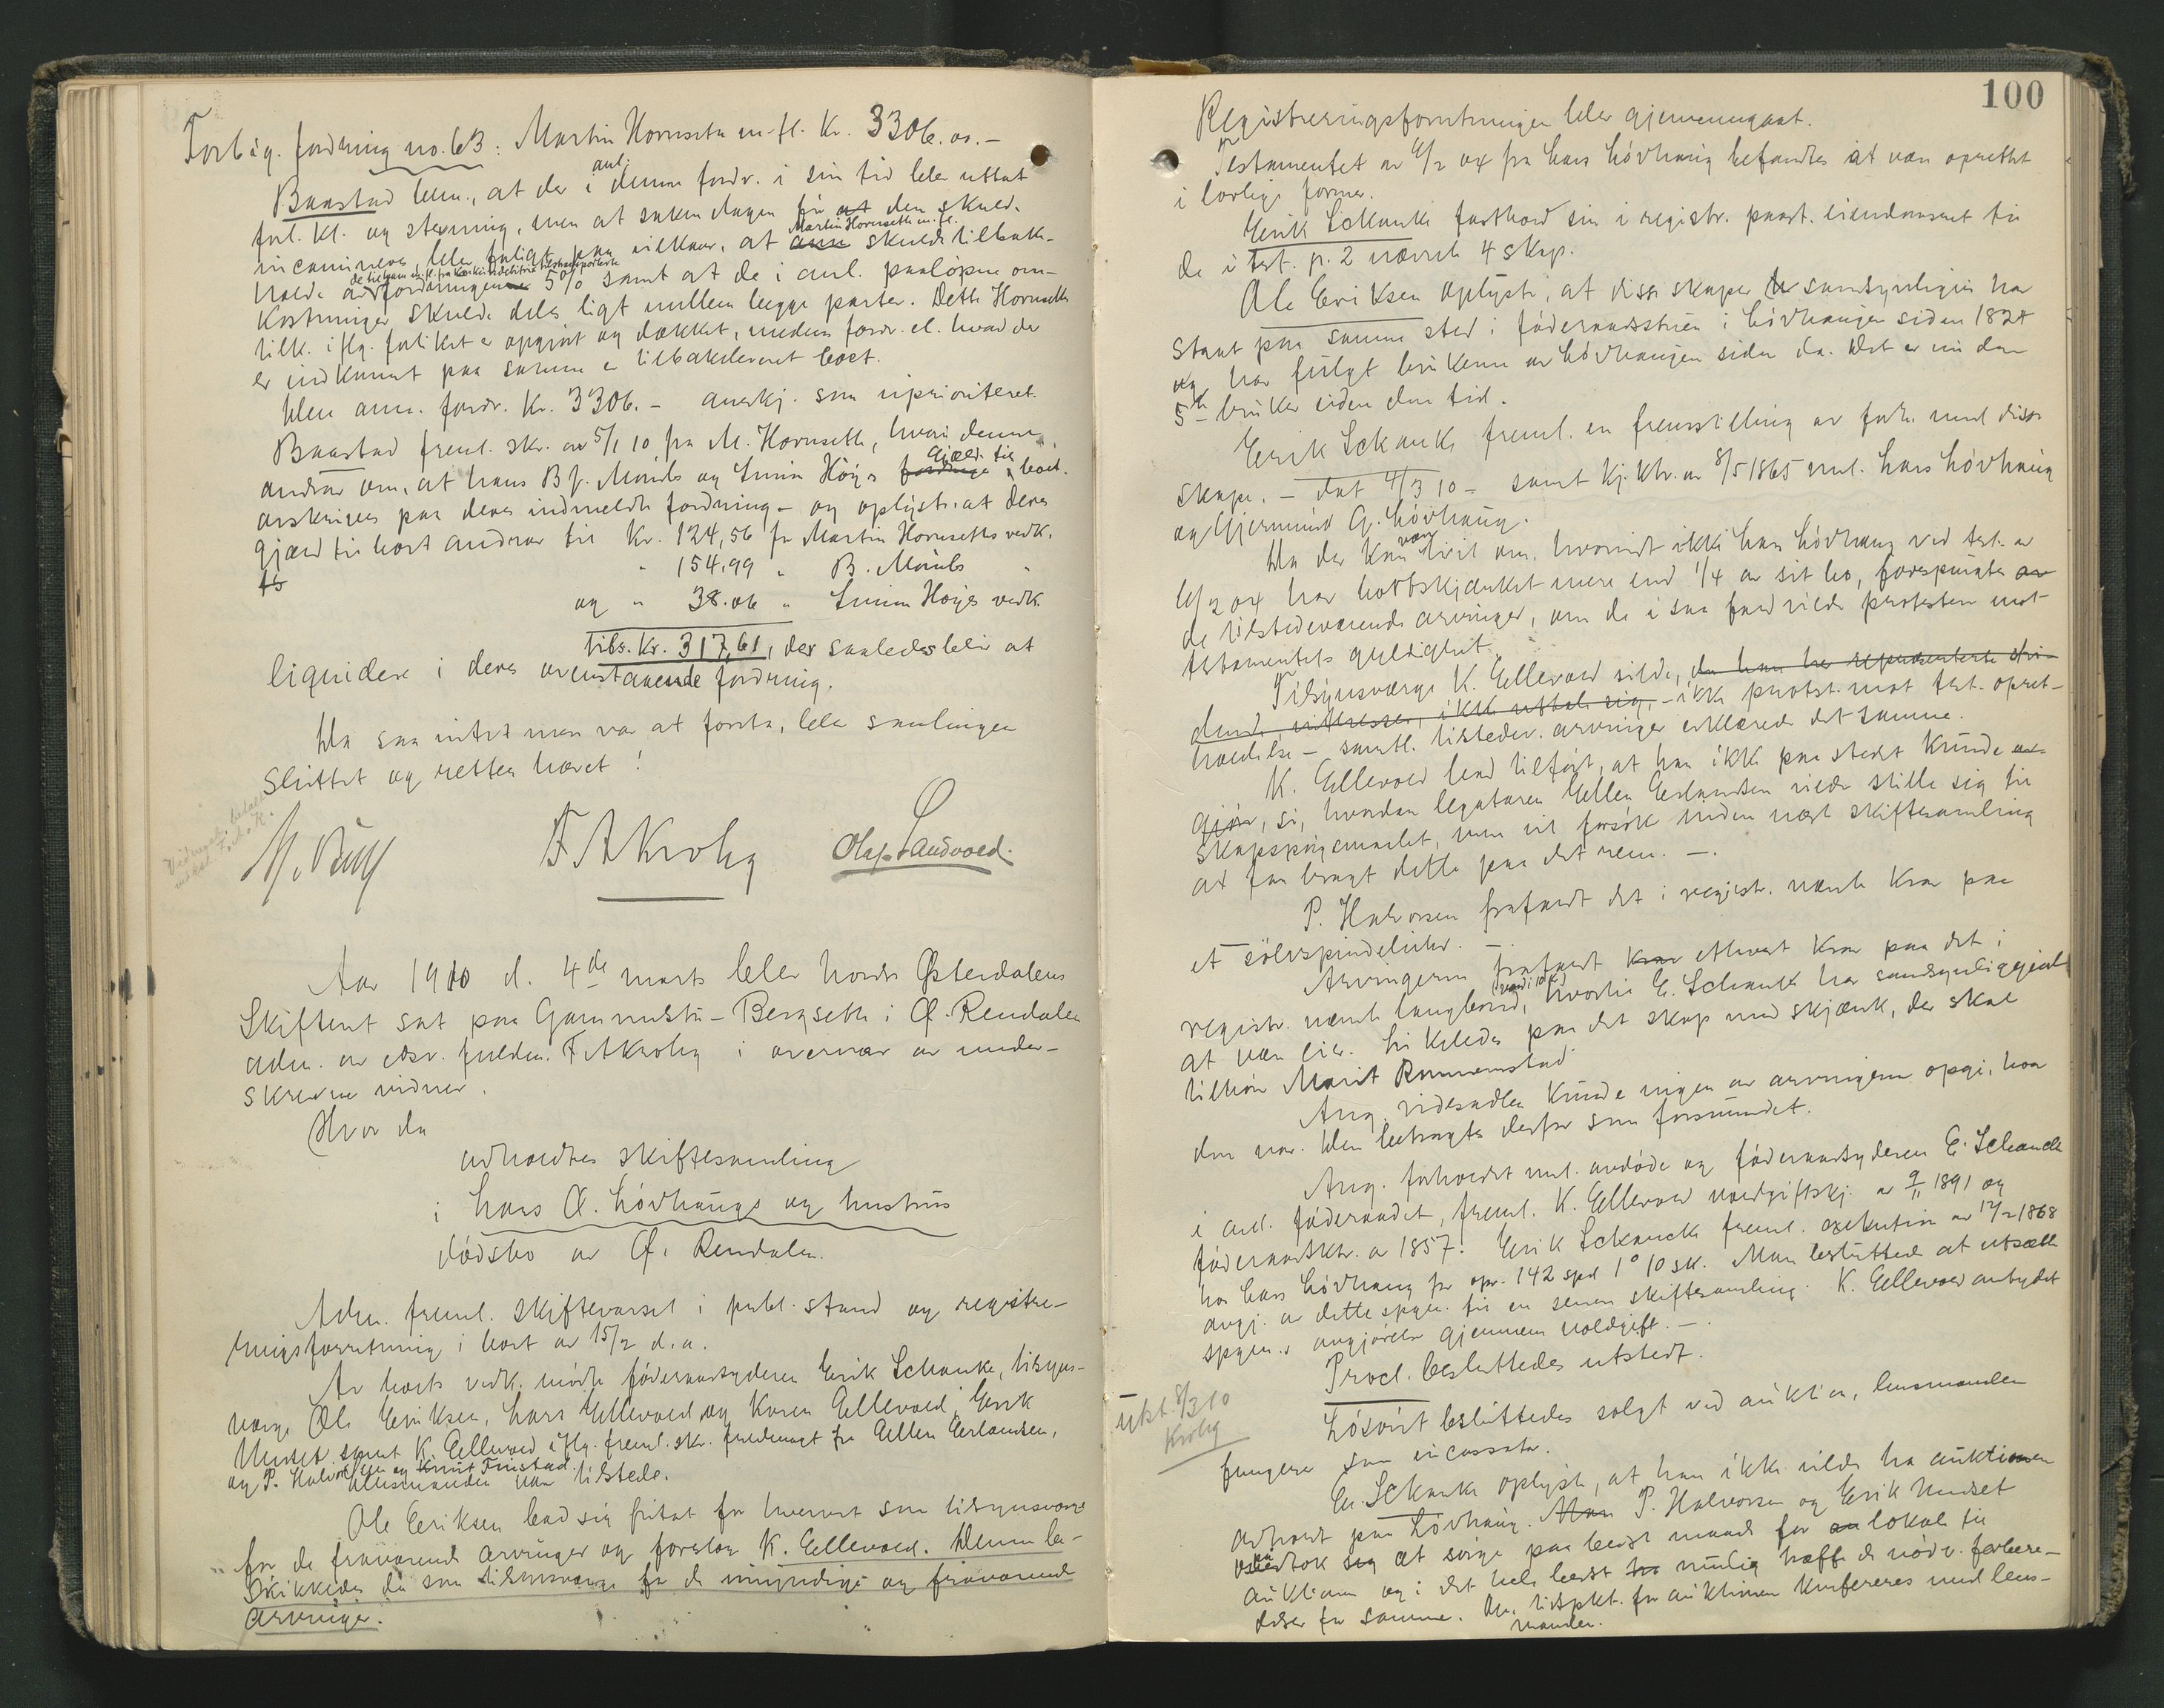 Forbig. fordring no. 63: Martin Hornseth m. fl. Kr. 3306.00.-
Baastad bem., at der i anl. denne fordr. i sin tid blev uttat
forl. kl. og stevning, men at saken dagen før den skulde
incamineres, blev forligt paa vilkaar, at Martin Hornseth m. fl. skulde tilbake-
holde av fordringen 5% samt at de i anl. paaløpne om-
kostninger skulde deles ligt mellem begge parter. Dette Hornseths
tilk. iflg. forliket er opgjort og dækket, medens fordr. el. hvad der
er indkommet paa samme er tilbakeleveret boet.
Den anm. fordr. Kr. 3306.- anerkj. som uprioriteret.
Baastad freml. skr. av 5/1 10 fra M. Hornseth, hvori denne
andrar om, at hans B. J. Moribs og Simen Høyes gjæld til boet
avskrives paa deres indmeldte fordring - og oplyste at deres
gjæld til boet andrar til Kr. 124,56 for Martin Hornseths vedk.
" 154,99 " B. Moribs "
og " 38.06 " Simen Høyes vedk.
tils. Kr. 317,61, der saaledes blir at
liquidere i deres ovenstaaende fordring.
Da saa intet mer var at foreta, blev samlingen
sluttet og retten hævet!
F A Krohg Olaf Sandvold.
Aar 1910 d. 4de marts blev nordre Østerdalens
Skifteret sat paa Gammelstu-Bergseth i Ø. Rendalen
adm. av edsv. fuldm. F A Krohg i overvær av under-
skrevne vidner.
Hvor da
avholdtes skiftesamling
i Lars O. Løvhaugs og hustrus
dødsbo av Ø. Rendalen.
Adm. freml. skiftevarsel i publ. stand og registre-
ringsforretning i boet av 15/2 d.a.
Av boets vedk. møtte føderaadsyderen Erik Schanke, tilsyns-
værge Ole Eriksen, Lars Ellevold og Karen Ellevold, Erik
Undset samt K. Ellevold iflg. freml. skr. fuldmagt fra Ellen Erlandsen,
og P. Halvorsen og Knut Finstad
Lensmanden var tilstede.
Ole Eriksen bad sig fritat for hvervet som tilsynsværge
for de fraværende arvinger og foreslog K. Ellevold. Denne be-
skikkedes da som tilsynsværge for de umyndige og fraværende
arvinger.
100
Registreringsforretningen blev gjennemgaat.
Testamentet av 6/2 04 fra Lars Løvhaug befandtes at være oprettet
i lovlige former.
Erik Schanke fastholdt sin i registr. paast. eiendomsret til
de i test. p. 2 nævnte 4 skap.
Ole Eriksen oplyste, at disse skaper sandsynligvis ha
staat paa samme sted i føderaadsstuen i Løvhaugen siden 1824
og har fulgt brukerne av Løvhaugen siden da. Det er nu den
5te bruker siden den tid.
Erik Schanke freml. en fremstilling av forh. med disse
skape. - dat 4/3 10 - samt kj. ktr. av 8/5 1865 mel. Lars Løvhaug
og Gjermund G. Løvhaug.
Da der kan være tvil om, hvorvidt ikke Lars Løvhaug ved test. av
6/2 04 har bortskjænket mere end 1/4 av sit bo, forespurgtes
de tilstedeværende arvinger, om de i saa fald vilde protestere mot
testamentets gyldighet.
Tilsynsværge K. Ellevold vilde, da han her repræsenterte stri-
dende interesser, ikke uttale sig, - ikke protest. mot test. opret-
holdelse - samtl. tilstedev. arvinger erklærede det samme.
K. Ellevold bad tilført, at han ikke paa stedet kunde
si, hvordan legataren Ellen Erlandsen vilde stille sig til
skapspørgsmaalet, men vil forsøke inden næste skiftesamling
at faa bragt dette paa det rene. -.
P. Halvorsen frafaldt det i registr. nævnte krav paa
et sølvspindeluhr. -.
Arvingerne frafaldt ethvert krav paa det i
registr. nævnte langbord, (værdi 10 k) hvortil E. Schanke har sandsynliggjort
at være eier. Likeledes paa det skap med skjænk, der skal
tilhøre Marit Rømmenstad.
Ang. ridesadlen kunde ingen av arvingerne opgi, hos
den var. Den betragtes derfor som forsvundet.
Ang. forholdet mel. avdøde og føderaadsyderen E. Schanke
i anl. føderaadet, freml. K. Ellevold voldgiftskj. av 9/11 1891 og
føderaadsktr. av 1857. Erik Schancke freml. exekution av 12/2 1868
hos Lars Løvhaug for opr. 142 spd 1° 10 sk. Man besluttede at utsætte
avgj. av dette spgm. til en senere skiftesamling. K. Ellevold antydet
spgm.s avgjørelse gjennem voldgift. -.
Procl. besluttedes utstedt.
utst. 8/3 10
Krohg
Løsøret besluttedes solgt ved auktion, lensmanden
fungerer som incassator.
E. Schanke oplyste, at han ikke vilde ha auktionen
avholdt paa Løvhaug. P. Halvorsen og Erik Undset
paatok sig at sørge paa bedst maate for lokale til
auktionen og i det hele bedst mulig træffe de nødv. forbere-
delser for samme. Om tidspkt. for auktionen konfereres med lens-
manden.